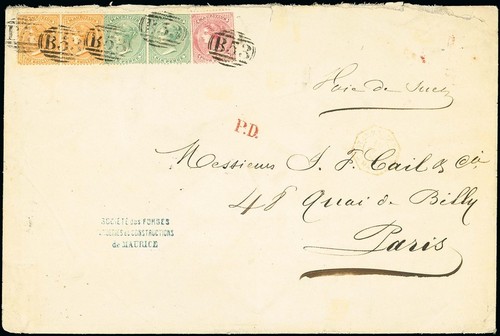 B53 B53 B53 B53
Voie de Suez
P.D.
Messieurs J. F. Cail & Cie
48 Quai de Billy
Paris
SOCIÉTÉ des FORGES
et CONSTRUCTIONS
de MAURICE